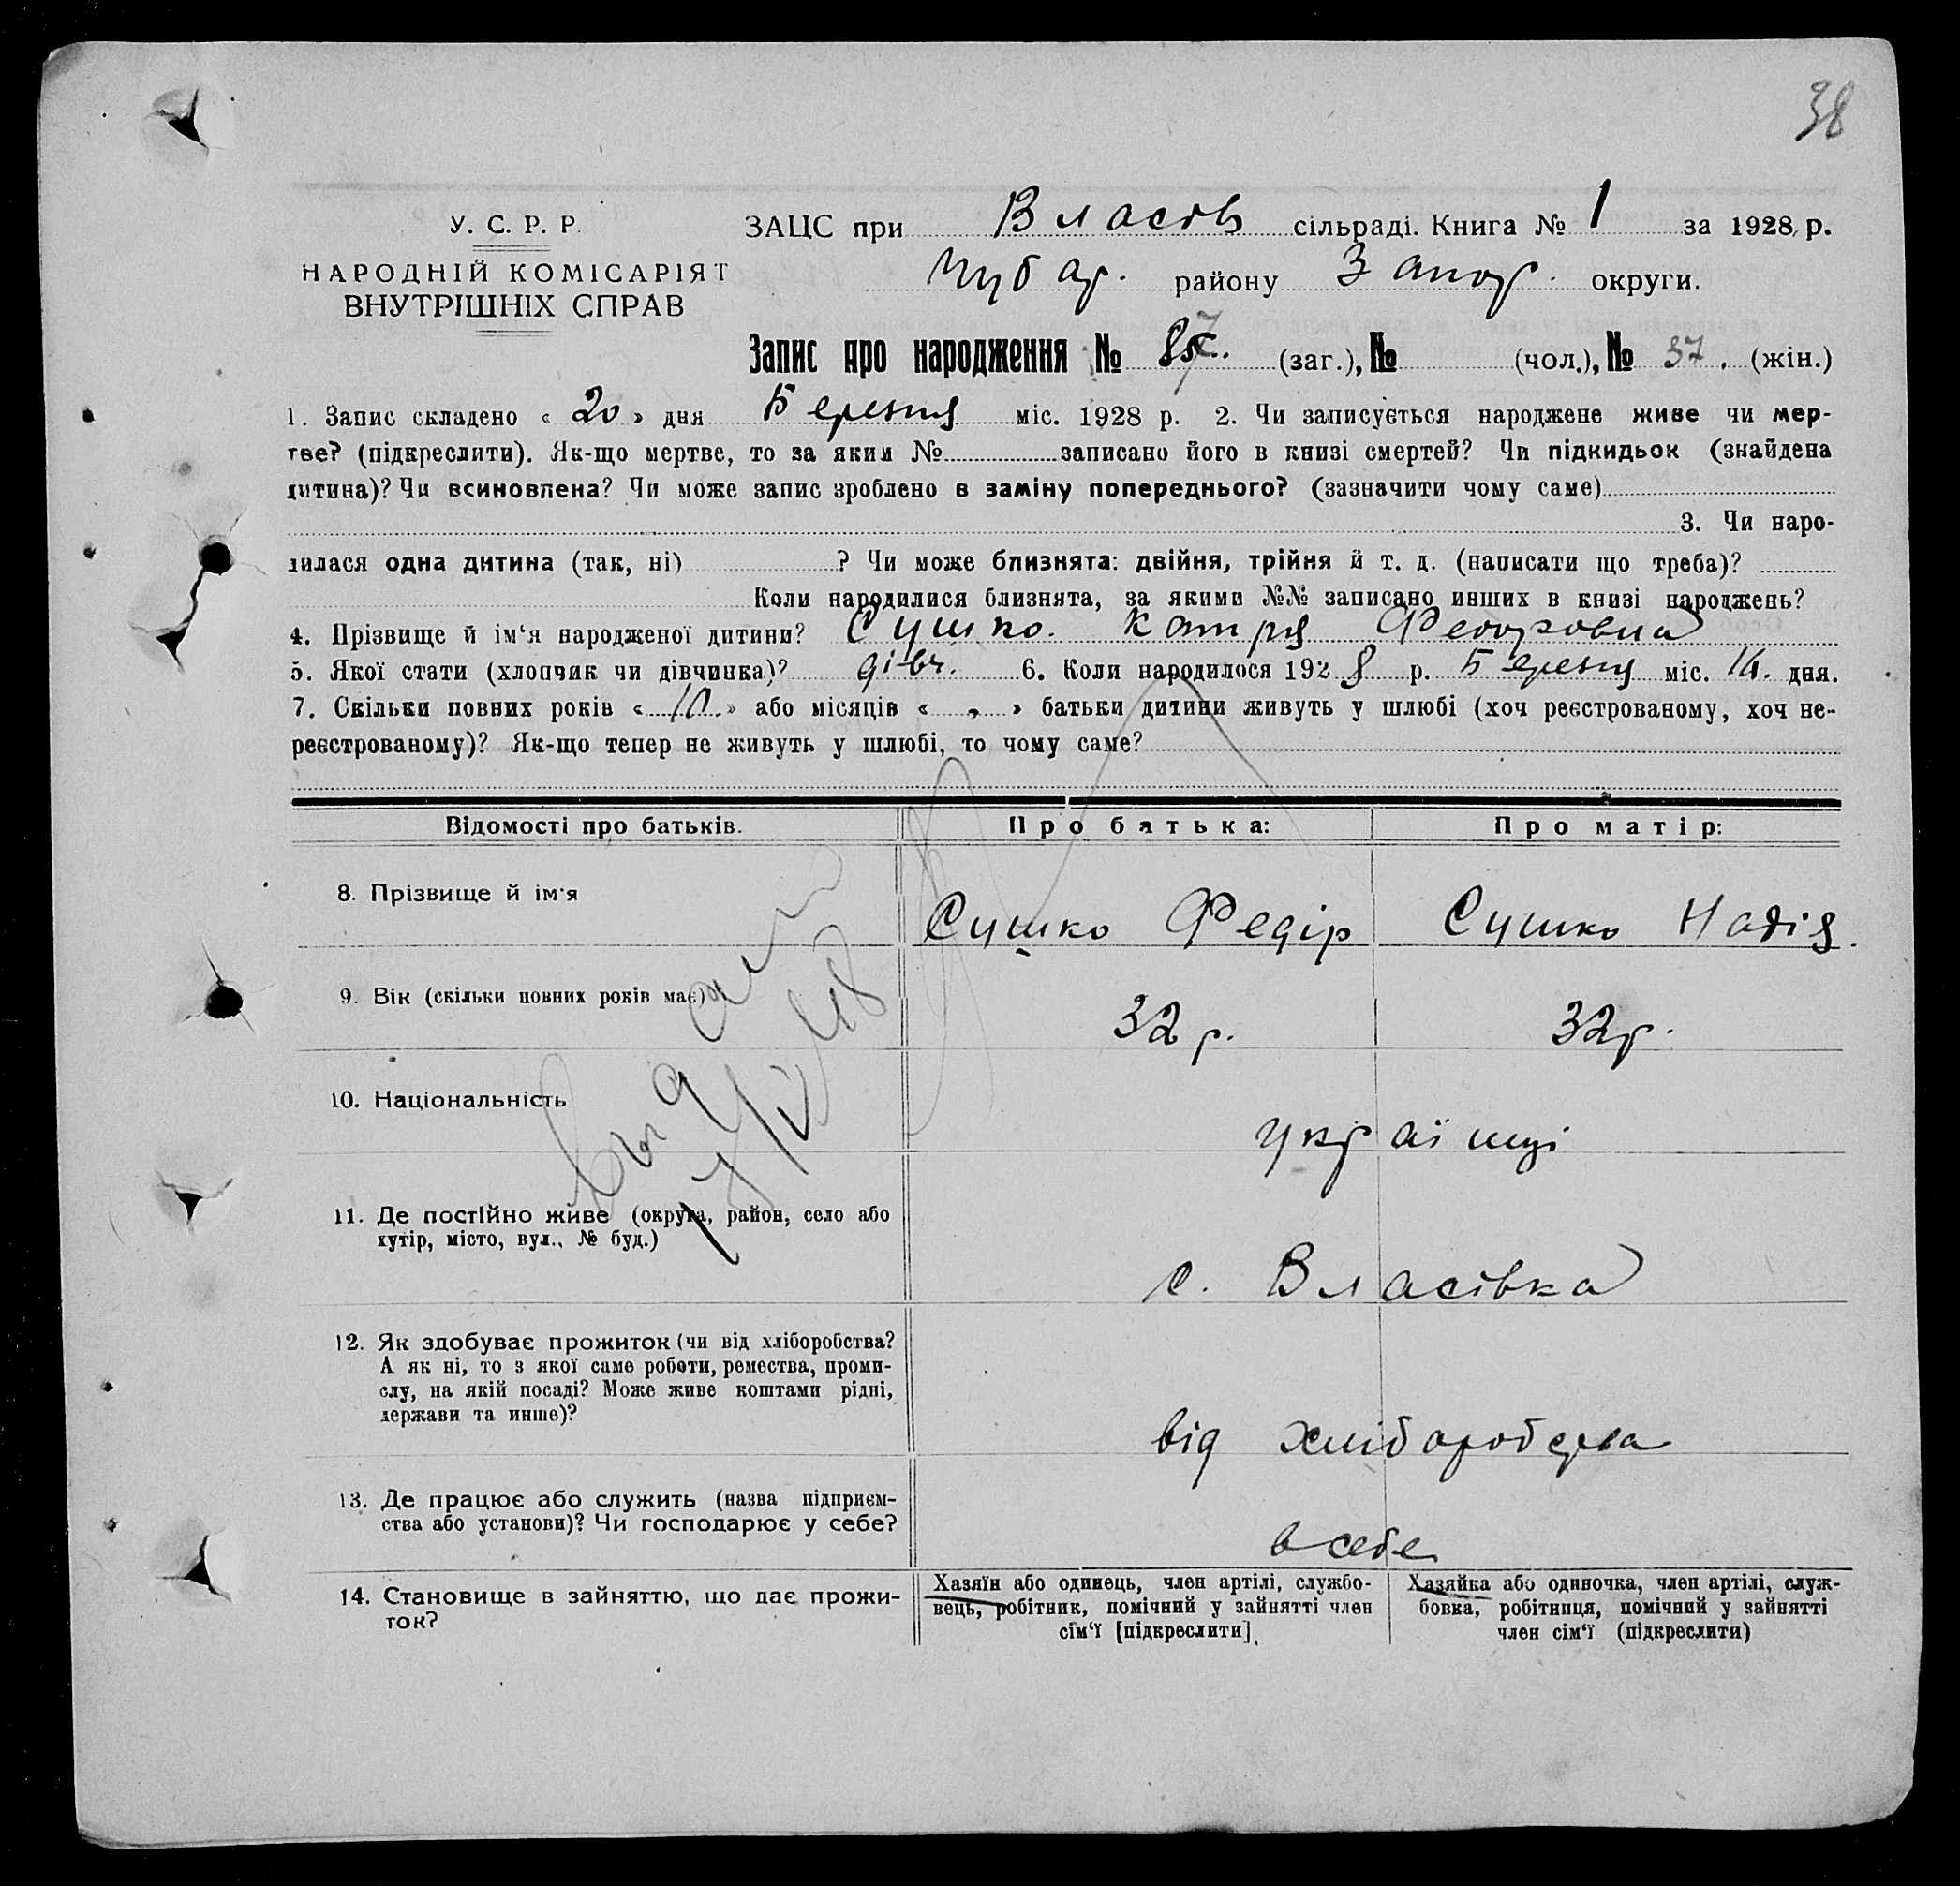 38
У. С. Р. Р.
НАРОДНІЙ КОМІСАРІЯТ
ВНУТРІШНІХ СПРАВ
ЗАЦС при Власів сільраді. Книга № 1 за 1928 р.
Чубар. району Запор. округи.
Запис про народження № (заг.), № (чол.), № 37. (жін.)
1. Запис складено « 20 » дня Березня міс. 1928 р. 2. Чи записується народжене живе чи мер-
тве? (підкреслити). Як-що мертве, то за яким № записано його в книзі смертей? Чи підкидьок (знайдена
дитина)? Чи всиновлена? Чи може запис зроблено в заміну попереднього? (зазначити чому саме)
3. Чи наро-
дилася одна дитина (так, ні) ? Чи може близнята: двійня, трійня й т. д. (написати що треба)?
Коли народилися близнята, за якими №№ записано инших в книзі народжень?
4. Прізвище й ім‘я народженої дитини? Сушко. Катря Федоровна
5. Якої стати (хлопчик чи дівчинка)? дівч. 6. Коли народилося 1928 р. Березня міс. дня.
7. Скільки повних років « 10. » або місяців « „ » батьки дитини живуть у шлюбі (хоч реєстрованому, хоч не-
реєстрованому)? Як-що тепер не живуть у шлюбі, то чому саме?
Відомості про батьків. Про батька: Про матір:
8. Прізвище й ім'я Сушко Федір Сушко Надія.
9. Вік (скільки повних років має) 32 р. 32 р.
10. Національність українці
11. Де постійно живе (округа, район, село або
хутір, місто, вул., № буд.)
с. Власівка
12. Як здобуває прожиток (чи від хліборобства?
А як ні, то з якої саме роботи, ремества, проми-
слу, на якій посаді? Може живе коштами рідні,
держави та инше)?
від хліборобства
13. Де працює або служить (назва підприєм-
ства або установи)? Чи господарює у себе?
в себе
14. Становище в зайняттю, що дає прожи-
ток?
Хазяїн або одинець, член артілі, службо-
вець, робітник, помічний у зайнятті член
сім‘ї [підкреслити].
Хазяйка або одиночка, член артілі, служ-
бовка, робітниця, помічний у зайнятті
член сім‘ї (підкреслити)